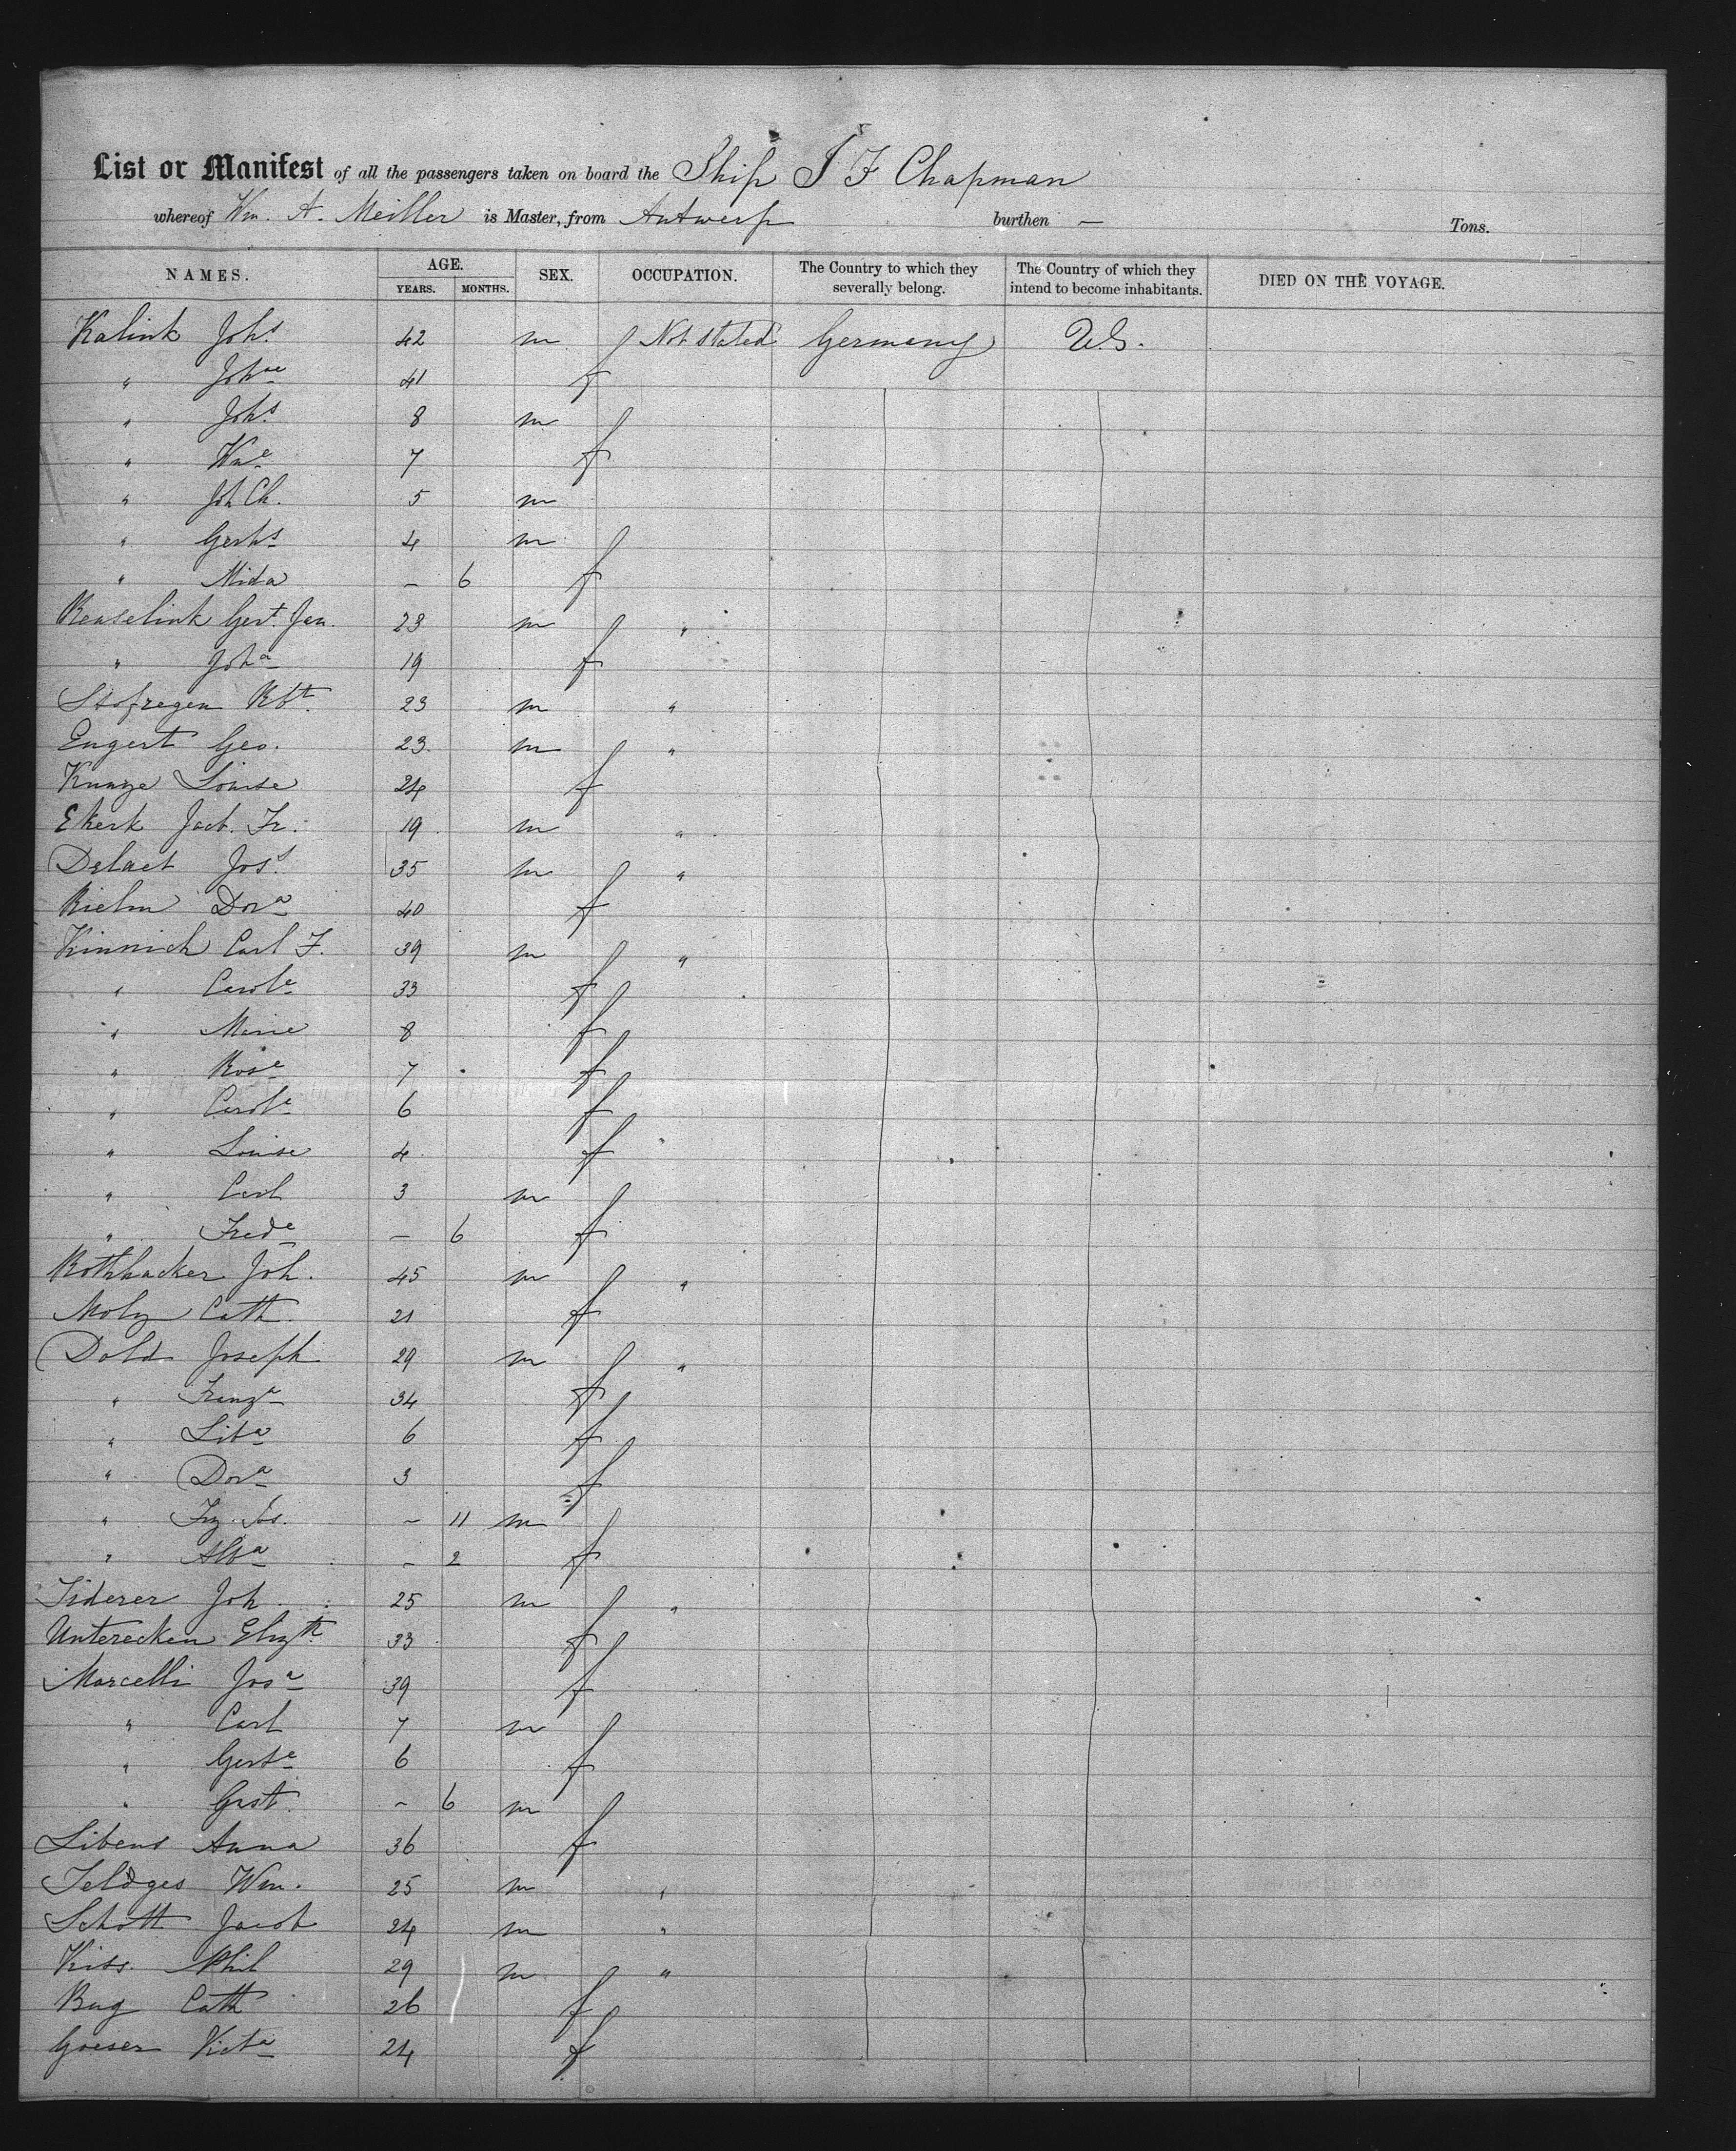 List or Manifest of all the passengers taken on board the Ship I F Chapman
whereof Wm. A. Meiller is Master, from Antwerp burthen — Tons.
NAMES. AGE. YEARS. MONTHS. SEX. OCCUPATION. The Country to which they severally belong. The Country of which they intend to become inhabitants. DIED ON THE VOYAGE.
Kalink Johs. 42 m Not stated Germany U.S.
" Johae 41 f
" Johs 8 m
" Wme 7 f
" Joh Ch. 5 m
" Gerhs 4 m
" Mida — 6 f
Renselink Gert. Jan. 23 m "
" Joha 19 f
Stofregen Rbt. 23 m "
Engert Geo. 23 m "
Kunze Louise 24 f
Ekerk Jacb. Fr. 19 m "
Delaet Joss. 35 m "
Rielm Dora 40 f
Kinnich Carl F. 39 m "
" Carole 33 f
" Mine 8 f
" Rose 7 f
" Carole 6 f
" Louise 4 f
" Carl 3 m
" Frede — 6 f
Rothhacker Joh. 45 m "
Molz Cath. 21 f
Dold Joseph 29 m "
" Franza 34 f
" Lita 6 f
" Dora 3 f
" Frz. Jos. — 11 m
" Alba — 2 f
Siderer Joh. 25 m "
Unterecken Elizth. 33 f
Marcelli Josa 39 f
" Carl 7 m
" Gerte 6 f
" Gust. — 6 m
Libens Anna 36 f
Teldges Wm. 25 m "
Schott Jacob 24 m "
Kiss Phil 29 m "
Bug Cath 26 f
Goeser Victa 24 f